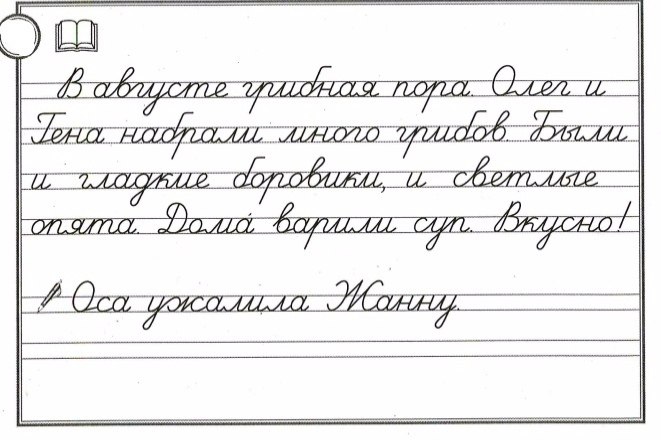 В августе грибная пора. Олег и
Гена набрали много грибов. Были
и гладкие боровики, и светлые
опята. Дома́ варили суп. Вкусно!
Оса ужалила Жанну.